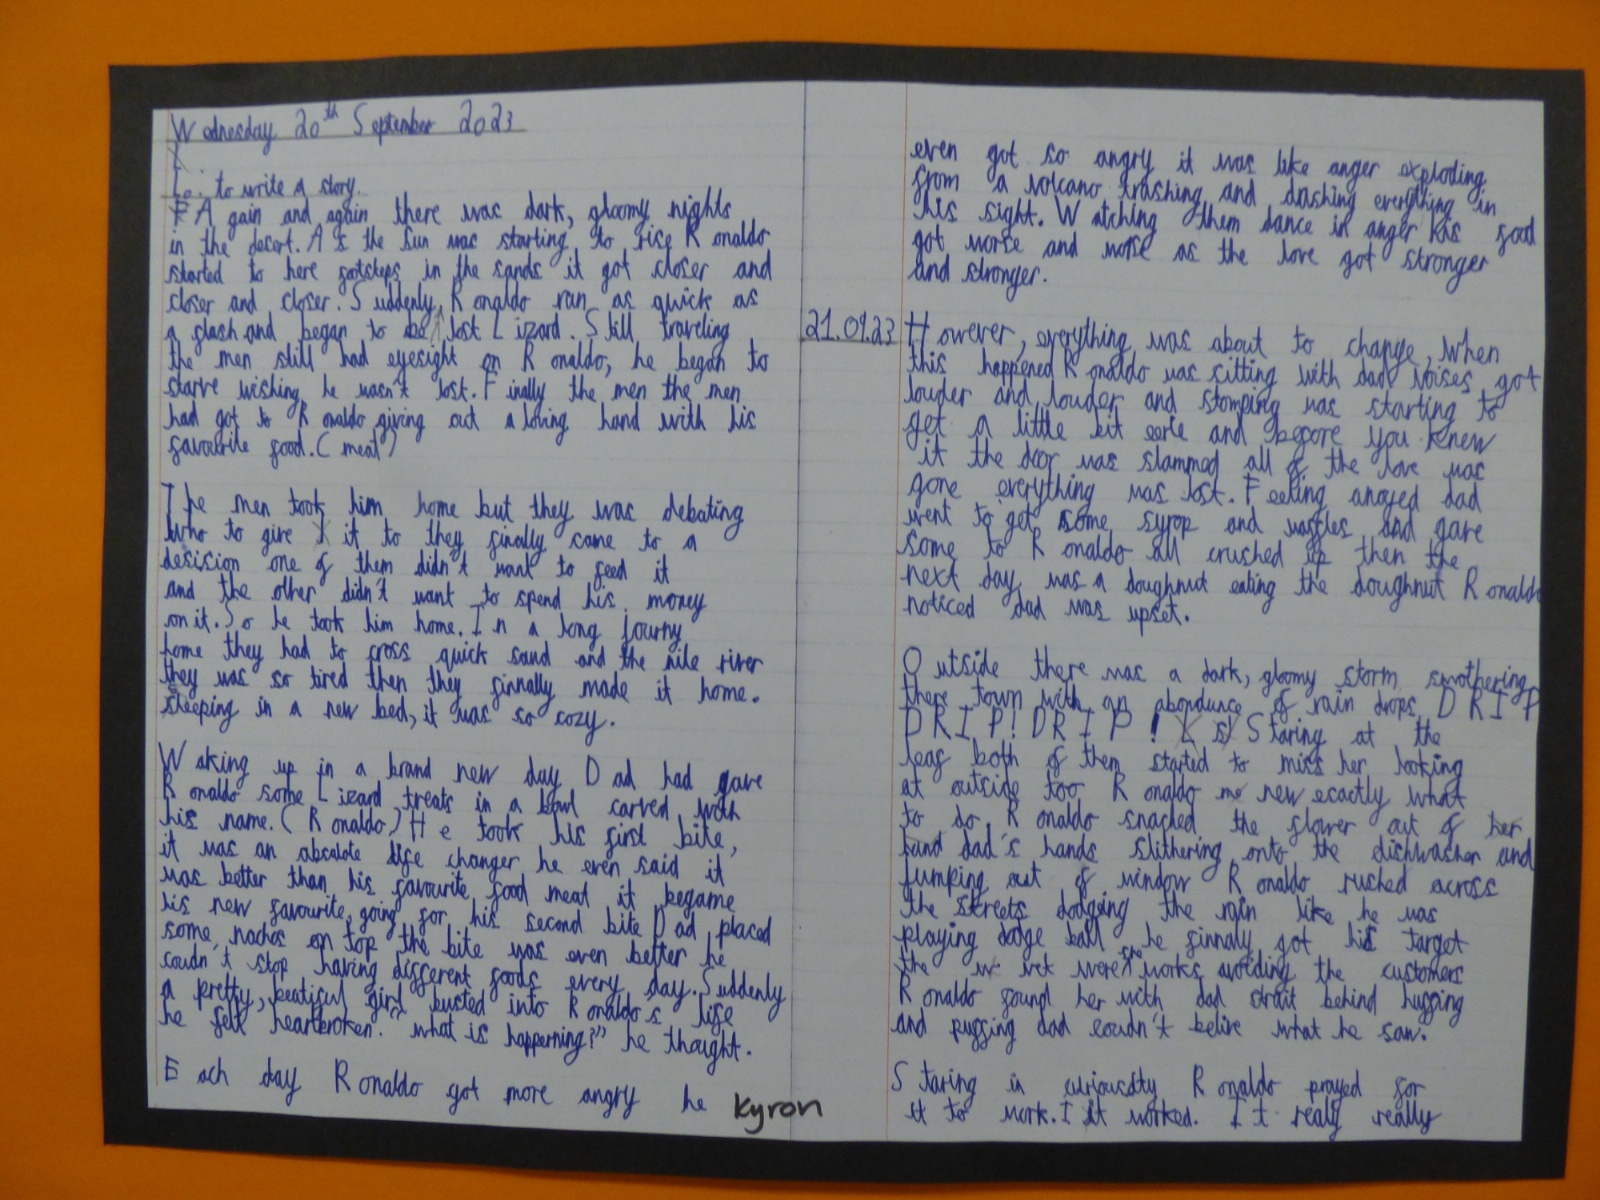 Wednesday 20th September 2023
L.o: to write a story.
A gain and again there was dark, gloomy nights
in the desert. As the sun was starting to rise Ronaldo
started to here footsteps in the sands it got closer and
closer and closer. Suddenly, Ronaldo ran as quick as
a flash and began to be lost Lizard. Still traveling
the men still had eyesight on Ronaldo, he began to
starve wishing he wasn't lost. Finally the men the men
had got to Ronaldo giving out a loving hand with his
favourite food. (meat)
The men took him home but they was debating
who to give it to they finally came to a
decision one of them didn't want to feed it
and the other didn't want to spend his money
on it. So he took him home. In a long journy
home they had to cross quick sand and the nile river
they was so tired then they finnally made it home.
sleeping in a new bed, it was so cozy.
Waking up in a brand new day Dad had gave
Ronaldo some Lizard treats in a bowl carved with
his name. (Ronaldo) He took his first bite,
it was an absalote life changer he even said it
was better than his favourite food meat it begame
his new favourite, going for his second bite Dad placed
some nachos on top the bite was even better he
coudn't stop having different foods every day. Suddenly
a pretty, beatiful girl busted into Ronaldo's life
he felt heartbroken. "what is happerning?" he thought.
Each day Ronaldo got more angry he
Kyron
even got so angry it was like anger exploding
from a volcano trashing and dashing everything in
his sight. Watching them dance in anger his food
got worse and worse as the love got stronger
and stronger.
21.09.23
However, everything was about to change, when
this happened Ronaldo was sitting with dad noises got
louder and louder and stomping was starting to
get a little bit eerie and before you knew
it the door was slammed all of the love was
gone everything was lost. Feeling anoyed dad
went to get some syrop and waffles and gave
some to Ronaldo all crushed up then the
next day was a doughnut eating the doughnut Ronaldo
noticed dad was upset.
Outside there was a dark, gloomy storm smothering
there town with an abondunce of rain drops, DRIP
DRIP! DRIP! Staring at the
leaf both of them started to miss her looking
at outside too Ronaldo new ecactly what
to do. Ronaldo snached the flower out of her
dad's hands slithering onto the dishwasher and
jumping out of window Ronaldo rushed across
the streets dodging the rain like he was
playing dodge ball he finnaly got his target
the vet were she works avoiding the customers
Ronaldo found her with dad strait behind hugging
and puffing dad coudn't belive what he saw.
Staring in curiousdity Ronaldo prayed for
it to work. It worked. It realy really